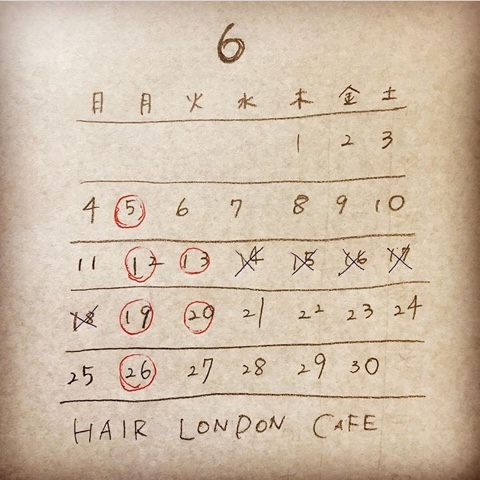 6
日 月 火 水 木 金 土
1 2 3
4 5 6 7 8 9 10
11 12 13 14 15 16 17
18 19 20 21 22 23 24
25 26 27 28 29 30
HAIR LONDON CAFE